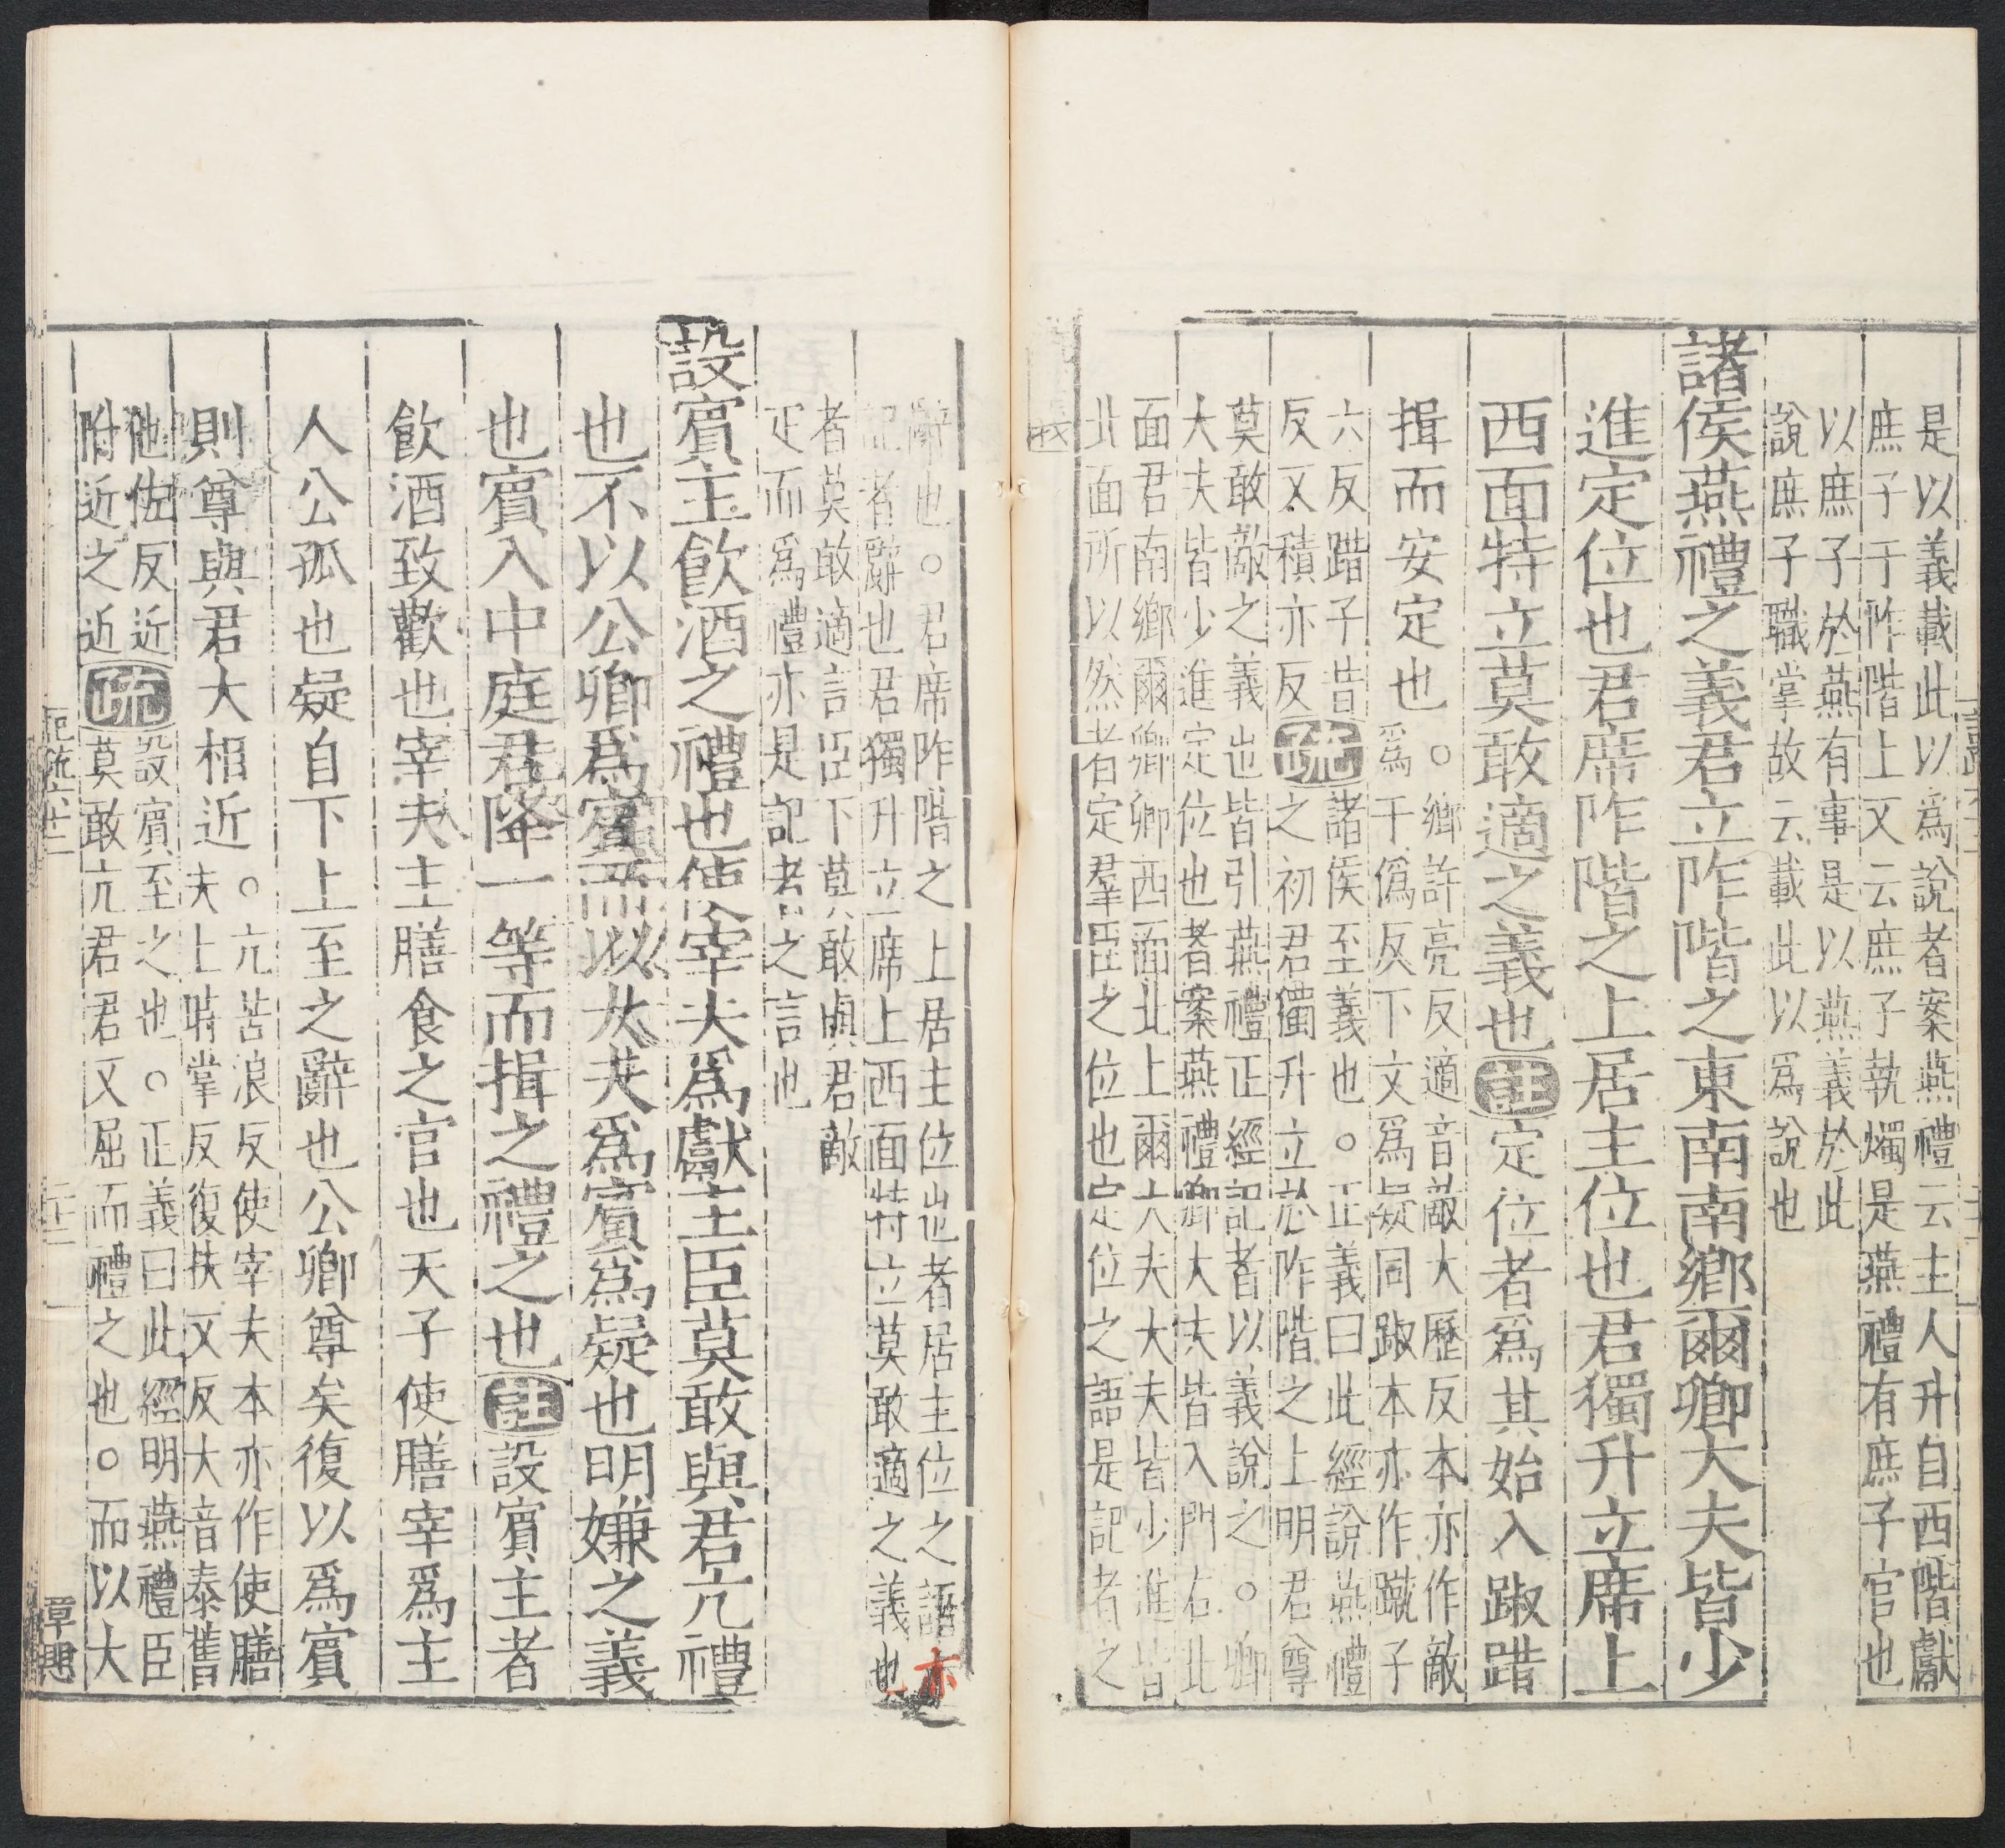 是以義載此以爲說者案燕禮云主人升自西階獻
庶子于阼階上又云庶子執燭是燕禮有庶子官也
以庶子於燕有事是以燕義於此
說庶子職掌故云載此以爲說也
諸侯燕禮之義君立阼階之東南南鄉爾卿大夫皆少
進定位也君席阼階之上居主位也君獨升立席上
西面特立莫敢適之義也註定位者爲其始入踧踖
揖而安定也
○鄉許亮反適音敵大歷反本亦作敵
爲于僞反下文爲疑同踧本亦作蹴子
六反踖子昔
反又積亦反
疏
諸侯至義也○正義曰此經說燕禮
之初君獨升立於阼階之上明君尊
莫敢敵之義也皆引燕禮正經記者以義說之○卿
大夫皆少進定位也者案燕禮卿大夫皆入門右北
面君南鄉爾卿卿西面北上爾大夫大夫皆少進皆
北面所以然者定羣臣之位也定位之語是記者之
辭也○君席阼階之上居主位也者居主位之語亦
記者辭也君獨升立席上西面特立莫敢適之義也
者莫敢適言臣下莫敢與君敵
疋而爲禮亦是記者之言也
設賓主飲酒之禮也使宰夫爲獻主臣莫敢與君亢禮
也不以公卿爲賓而以大夫爲賓爲疑也明嫌之義
也賓入中庭君降一等而揖之禮之也註設賓主者
飲酒致歡也宰夫主膳食之官也天子使膳宰爲主
人公孤也疑自下上至之辭也公卿尊矣復以爲賓
則尊與君大相近
○亢苦浪反使宰夫本亦作使膳
夫上時掌反復扶又反大音泰舊
他佐反近
附近之近
疏
設賓至之也○正義曰此經明燕禮臣
莫敢亢君君又屈而禮之也○而以大